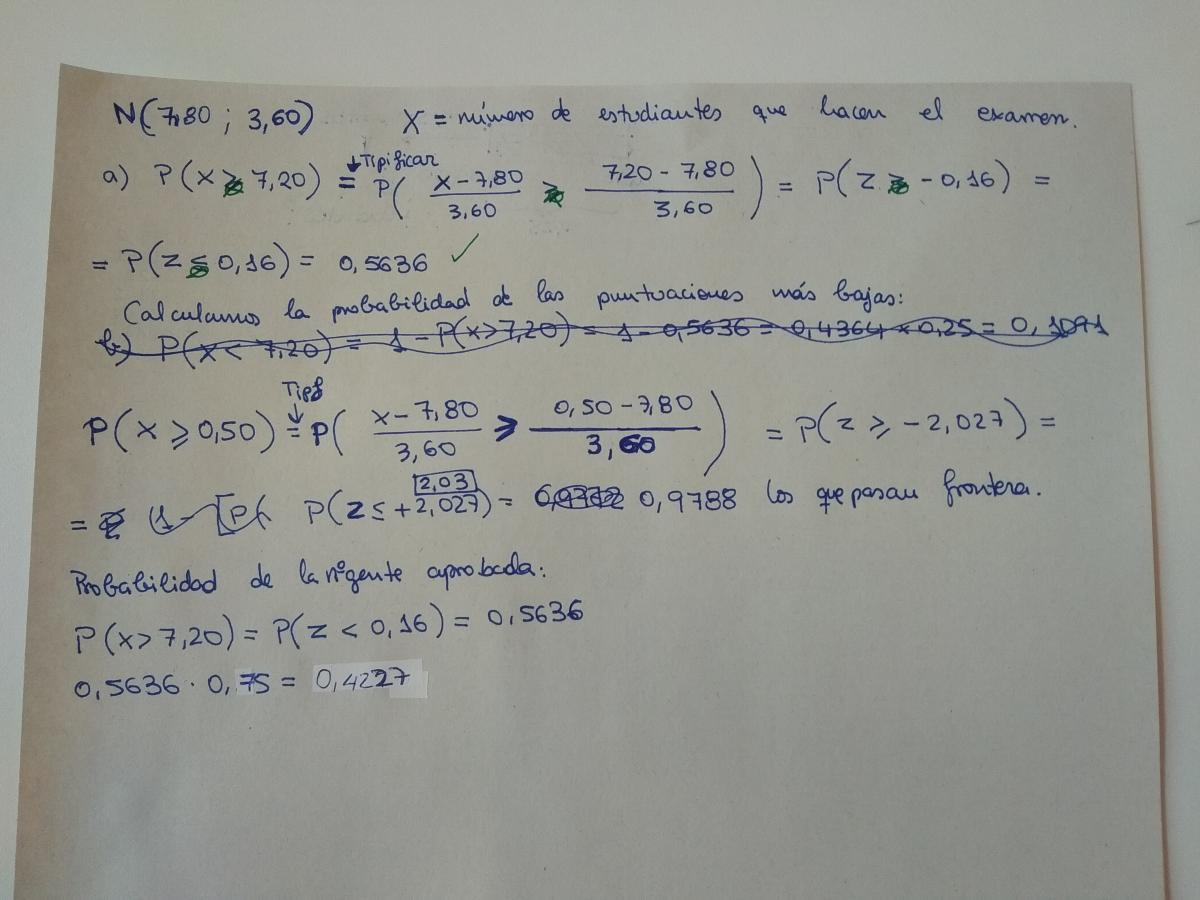 N(7,80 ; 3,60) X = número de estudiantes que hacen el examen.
↓Tipificar
a) P(X ≥ 7,20) = P( X-7,80 / 3,60 ≥ 7,20-7,80 / 3,60 ) = P(Z ≥ -0,16) =
= P(Z ≤ 0,16) = 0,5636 ✓
Calculamos la probabilidad de las puntuaciones más bajas:
b) P(X < 7,20) = 1 - P(X>7,20) = 1 - 0,5636 = 0,4364 × 0,25 = 0,1091
Tipf ↓
P(X ≥ 0,50) = P( X-7,80 / 3,60 ≥ 0,50-7,80 / 3,60 ) = P(Z ≥ -2,027) =
2,03
= (1 - [P( P(Z ≤ +2,027) = 0,9788 los que pasan frontera.
Probabilidad de la nºgente aprobada:
P(X> 7,20) = P(Z < 0,16) = 0,5636
0,5636 · 0,75 = 0,4227